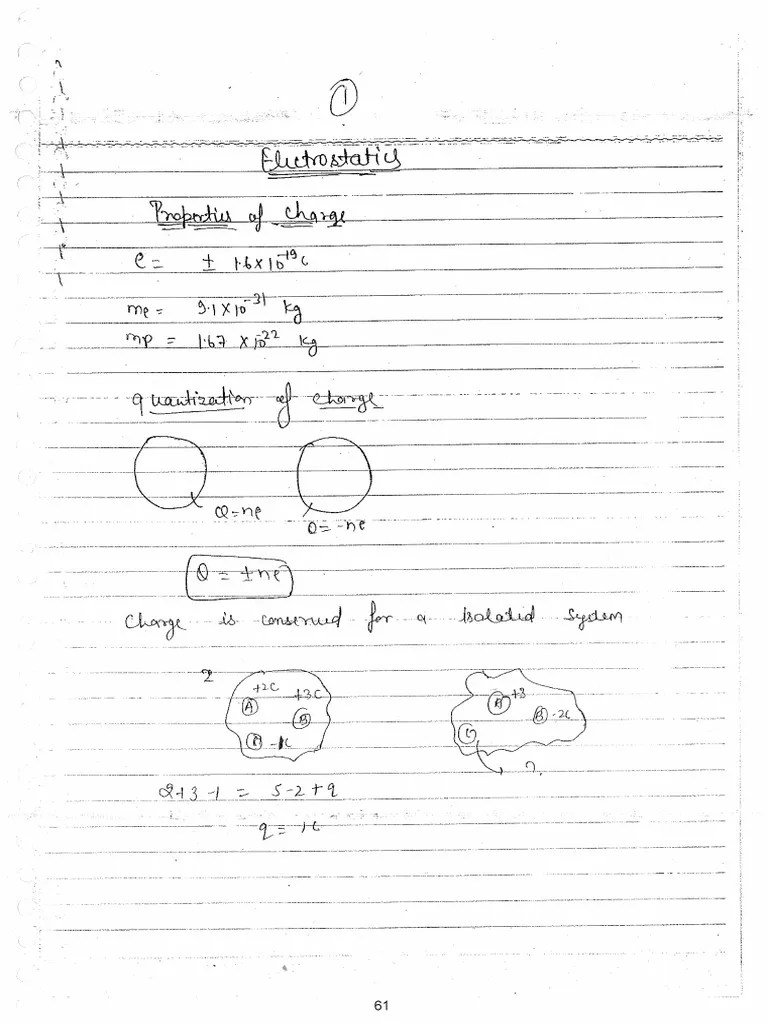 1
Electrostatics
Properties of charge
e = ± 1.6 × 10⁻¹⁹ C
me = 9.1 × 10⁻³¹ kg
mp = 1.67 × 10⁻²² kg
quantization of charge
Q = ne
Q = -ne
Q = ±ne
Charge is conserved for a isolated system
2
+2C
+3C
A
B
-1C
+3
A
B -2C
?
2+3-1 = 5-2+q
q = 1C
61